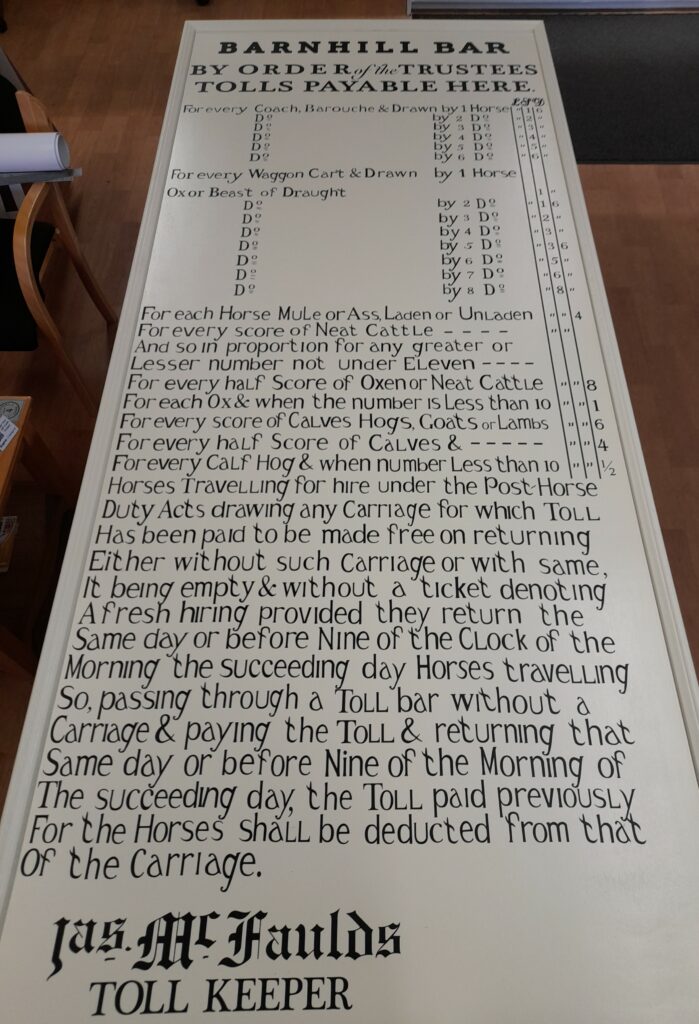 BARNHILL BAR
BY ORDER of the TRUSTEES
TOLLS PAYABLE HERE.
L S D
For every Coach, Barouche & Drawn by 1 Horse " 1 6
Do by 2 Do " 2 "
Do by 3 Do " 3 "
Do by 4 Do " 4 "
Do by 5 Do " 5 "
Do by 6 Do " 6 "
For every Waggon Cart & Drawn by 1 Horse
Ox or Beast of Draught 1 "
Do by 2 Do " 1 6
Do by 3 Do " 2 "
Do by 4 Do " 3 "
Do by 5 Do " 3 6
Do by 6 Do " 5 "
Do by 7 Do " 6 "
Do by 8 Do " 8 "
For each Horse Mule or Ass, Laden or Unladen " " 4
For every score of Neat Cattle - - - - " "
And so in proportion for any greater or
Lesser number not under Eleven - - - -
For every half Score of Oxen or Neat Cattle " " 8
For each Ox & when the number is Less than 10 " " 1
For every score of Calves Hogs, Goats or Lambs " " 6
For every half Score of Calves & - - - - - " " 4
For every Calf Hog & when number Less than 10 " " ½
Horses Travelling for hire under the Post-Horse
Duty Acts drawing any Carriage for which Toll
Has been paid to be made free on returning
Either without such Carriage or with same,
It being empty & without a ticket denoting
A fresh hiring provided they return the
Same day or before Nine of the Clock of the
Morning the succeeding day Horses travelling
So, passing through a Toll bar without a
Carriage & paying the Toll & returning that
Same day or before Nine of the Morning of
The succeeding day, the Toll paid previously
For the Horses shall be deducted from that
Of the Carriage.
Jas. McFaulds
TOLL KEEPER